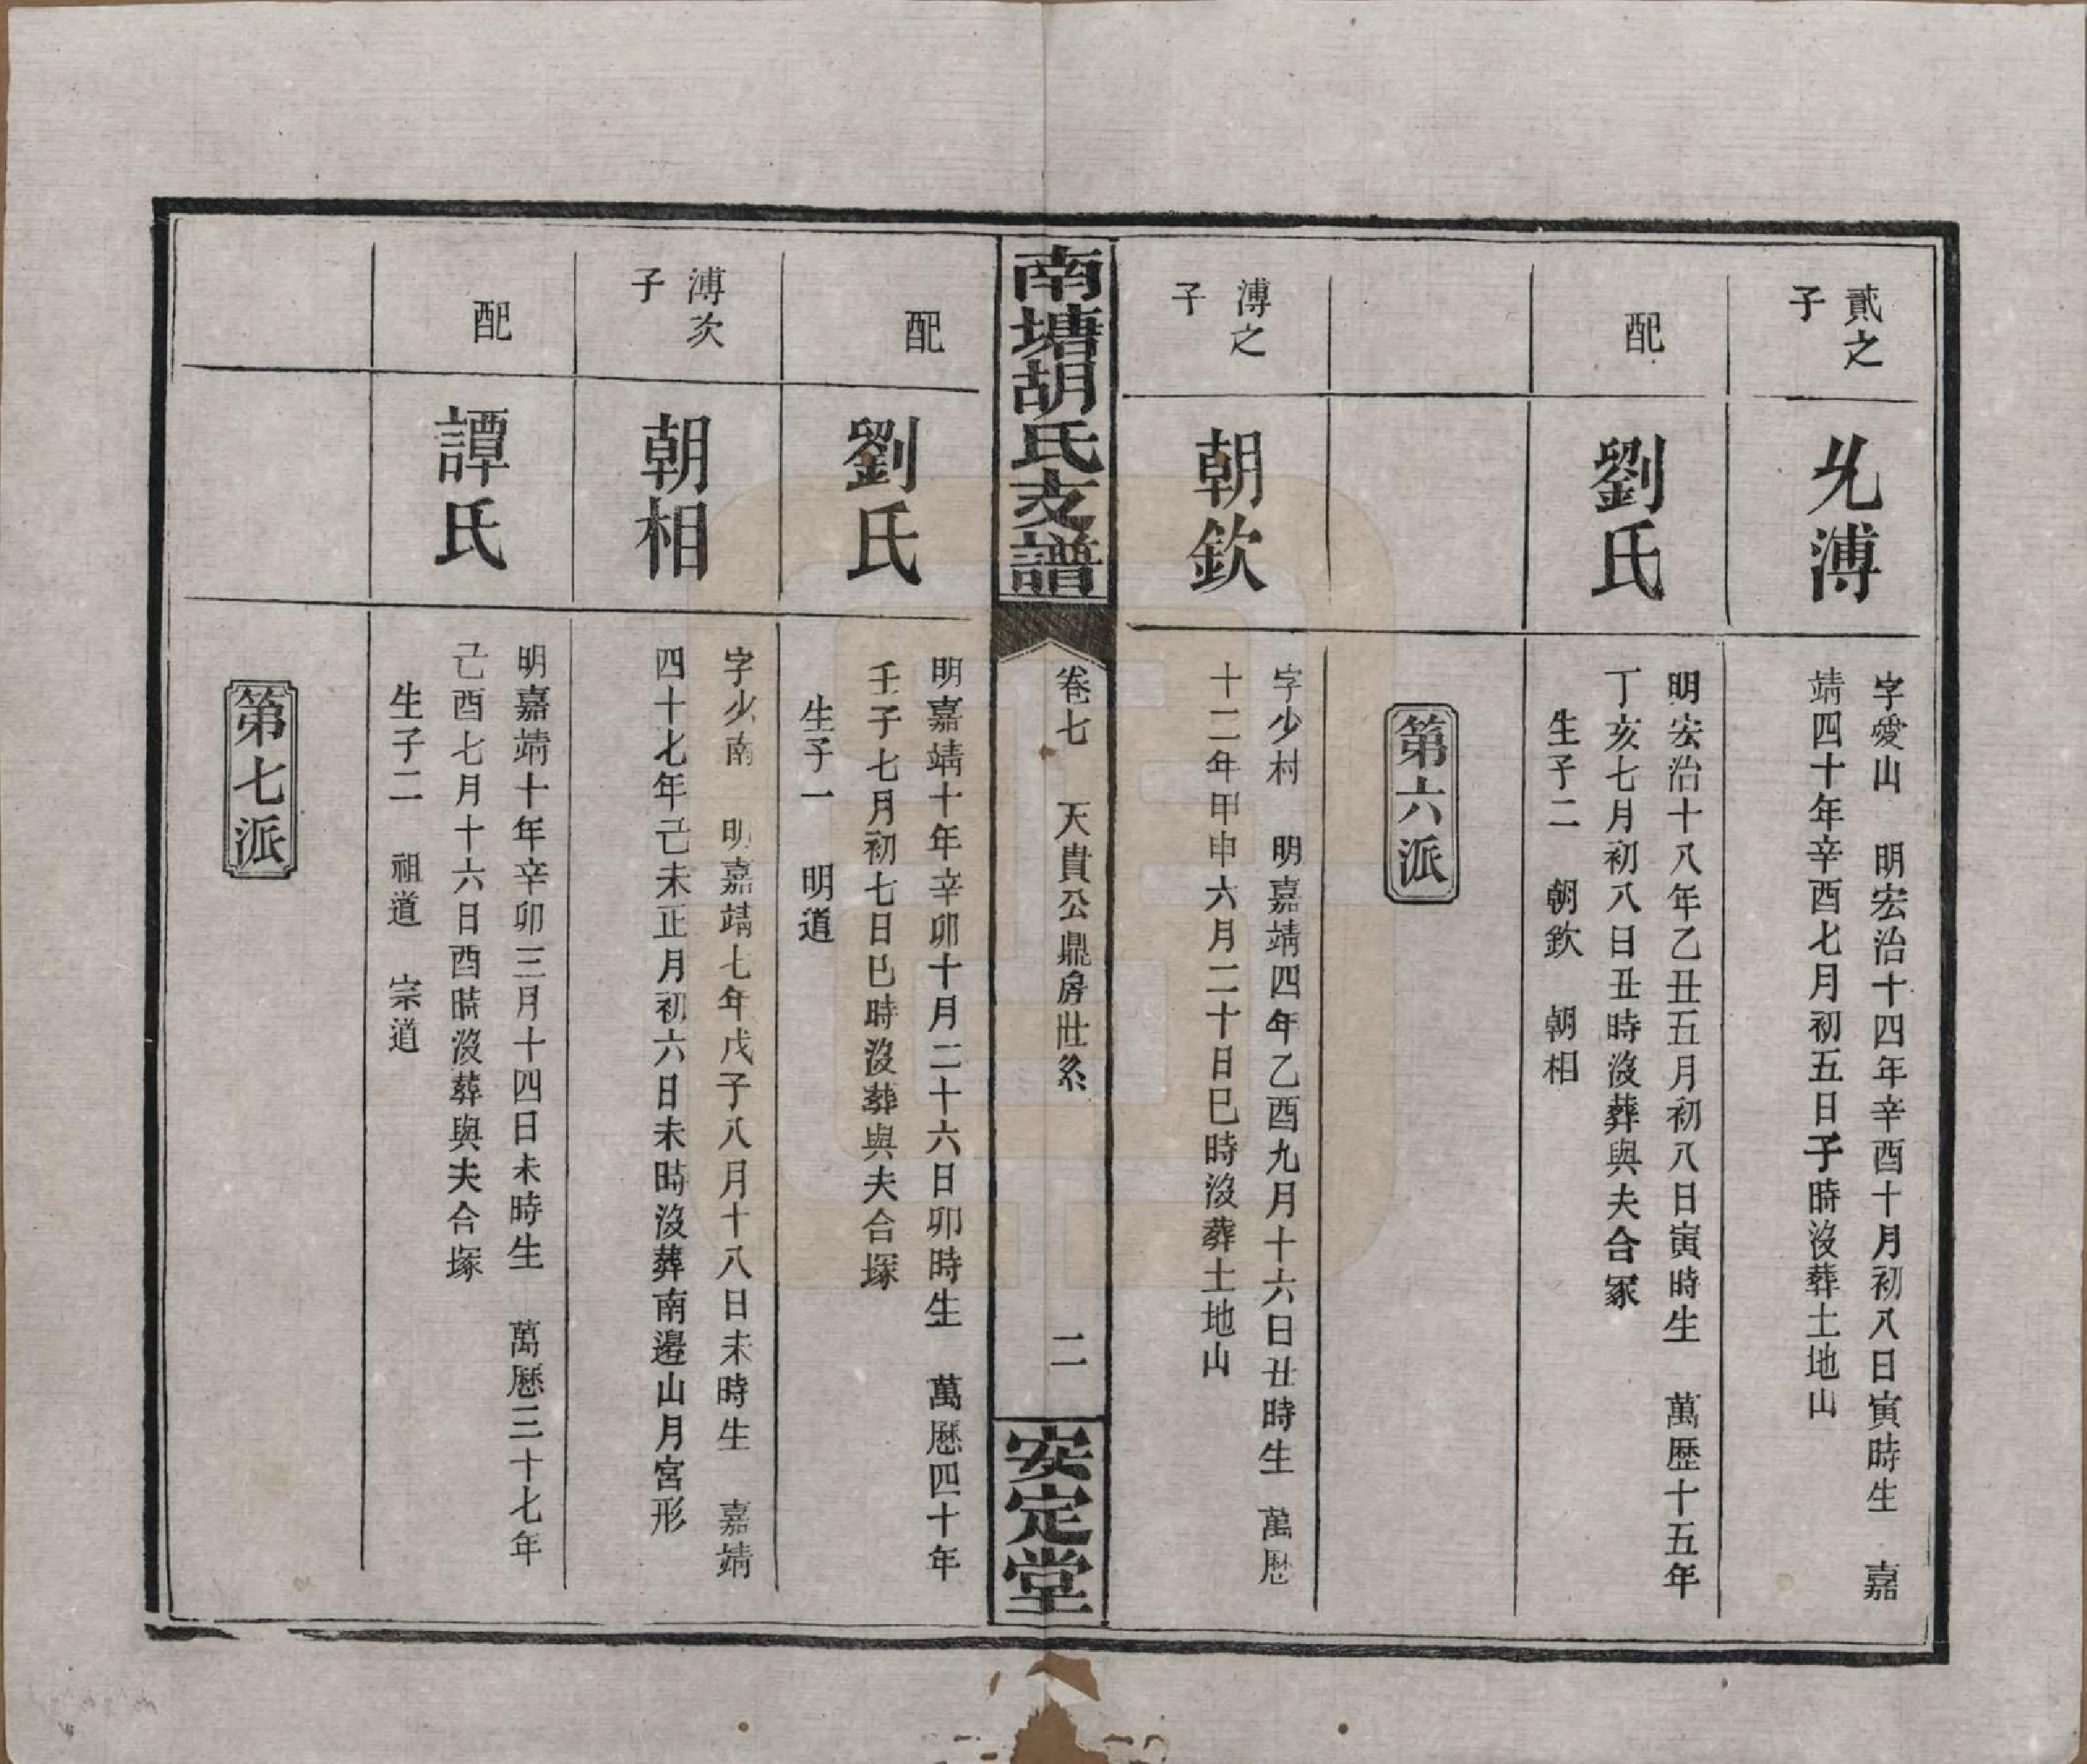 貳之
子
允溥
字愛山　明宏治十四年辛酉十月初八日寅時生　嘉
靖四十年辛酉七月初五日子時沒葬土地山
配
劉氏
明宏治十八年乙丑五月初八日寅時生　萬歷十五年
丁亥七月初八日丑時沒葬與夫合冢
生子二　朝欽　朝相
第六派
溥之
子
朝欽
字少村　明嘉靖四年乙酉九月十六日丑時生　萬歷
十二年甲申六月二十日巳時沒葬土地山
南塘胡氏支譜
卷七　天貴公鼎房世系
二
安定堂
配
劉氏
明嘉靖十年辛卯十月二十六日卯時生　萬歷四十年
壬子七月初七日巳時沒葬與夫合塚
生子一　明道
溥次
子
朝相
字少南　明嘉靖七年戊子八月十八日未時生　嘉靖
四十七年己未正月初六日未時沒葬南邊山月宮形
配
譚氏
明嘉靖十年辛卯三月十四日未時生　萬歷三十七年
己酉七月十六日酉時沒葬與夫合塚
生子二　祖道　宗道
第七派